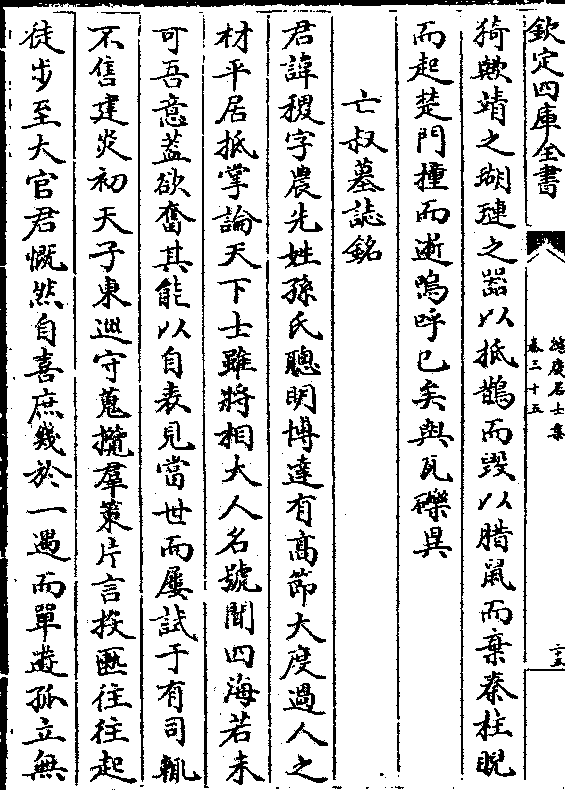 欽定四庫全書
鴻慶居士集
卷三十五
二十五
猗歟靖之瑚璉之器以抵鵲而毀以腊鼠而棄秦柱睨
而起楚門撞而逝嗚呼已矣與瓦礫異
亡叔墓誌銘
君諱稷字農先姓孫氏聰明博達有高節大度過人之
材平居抵掌論天下士雖將相大人名號聞四海若未
可吾意蓋欲奮其能以自表見當世而屢試于有司輒
不售建炎初天子東巡守蒐攬羣策片言投匭往往起
徒步至大官君慨然自喜庶幾於一遇而單遊孤立無